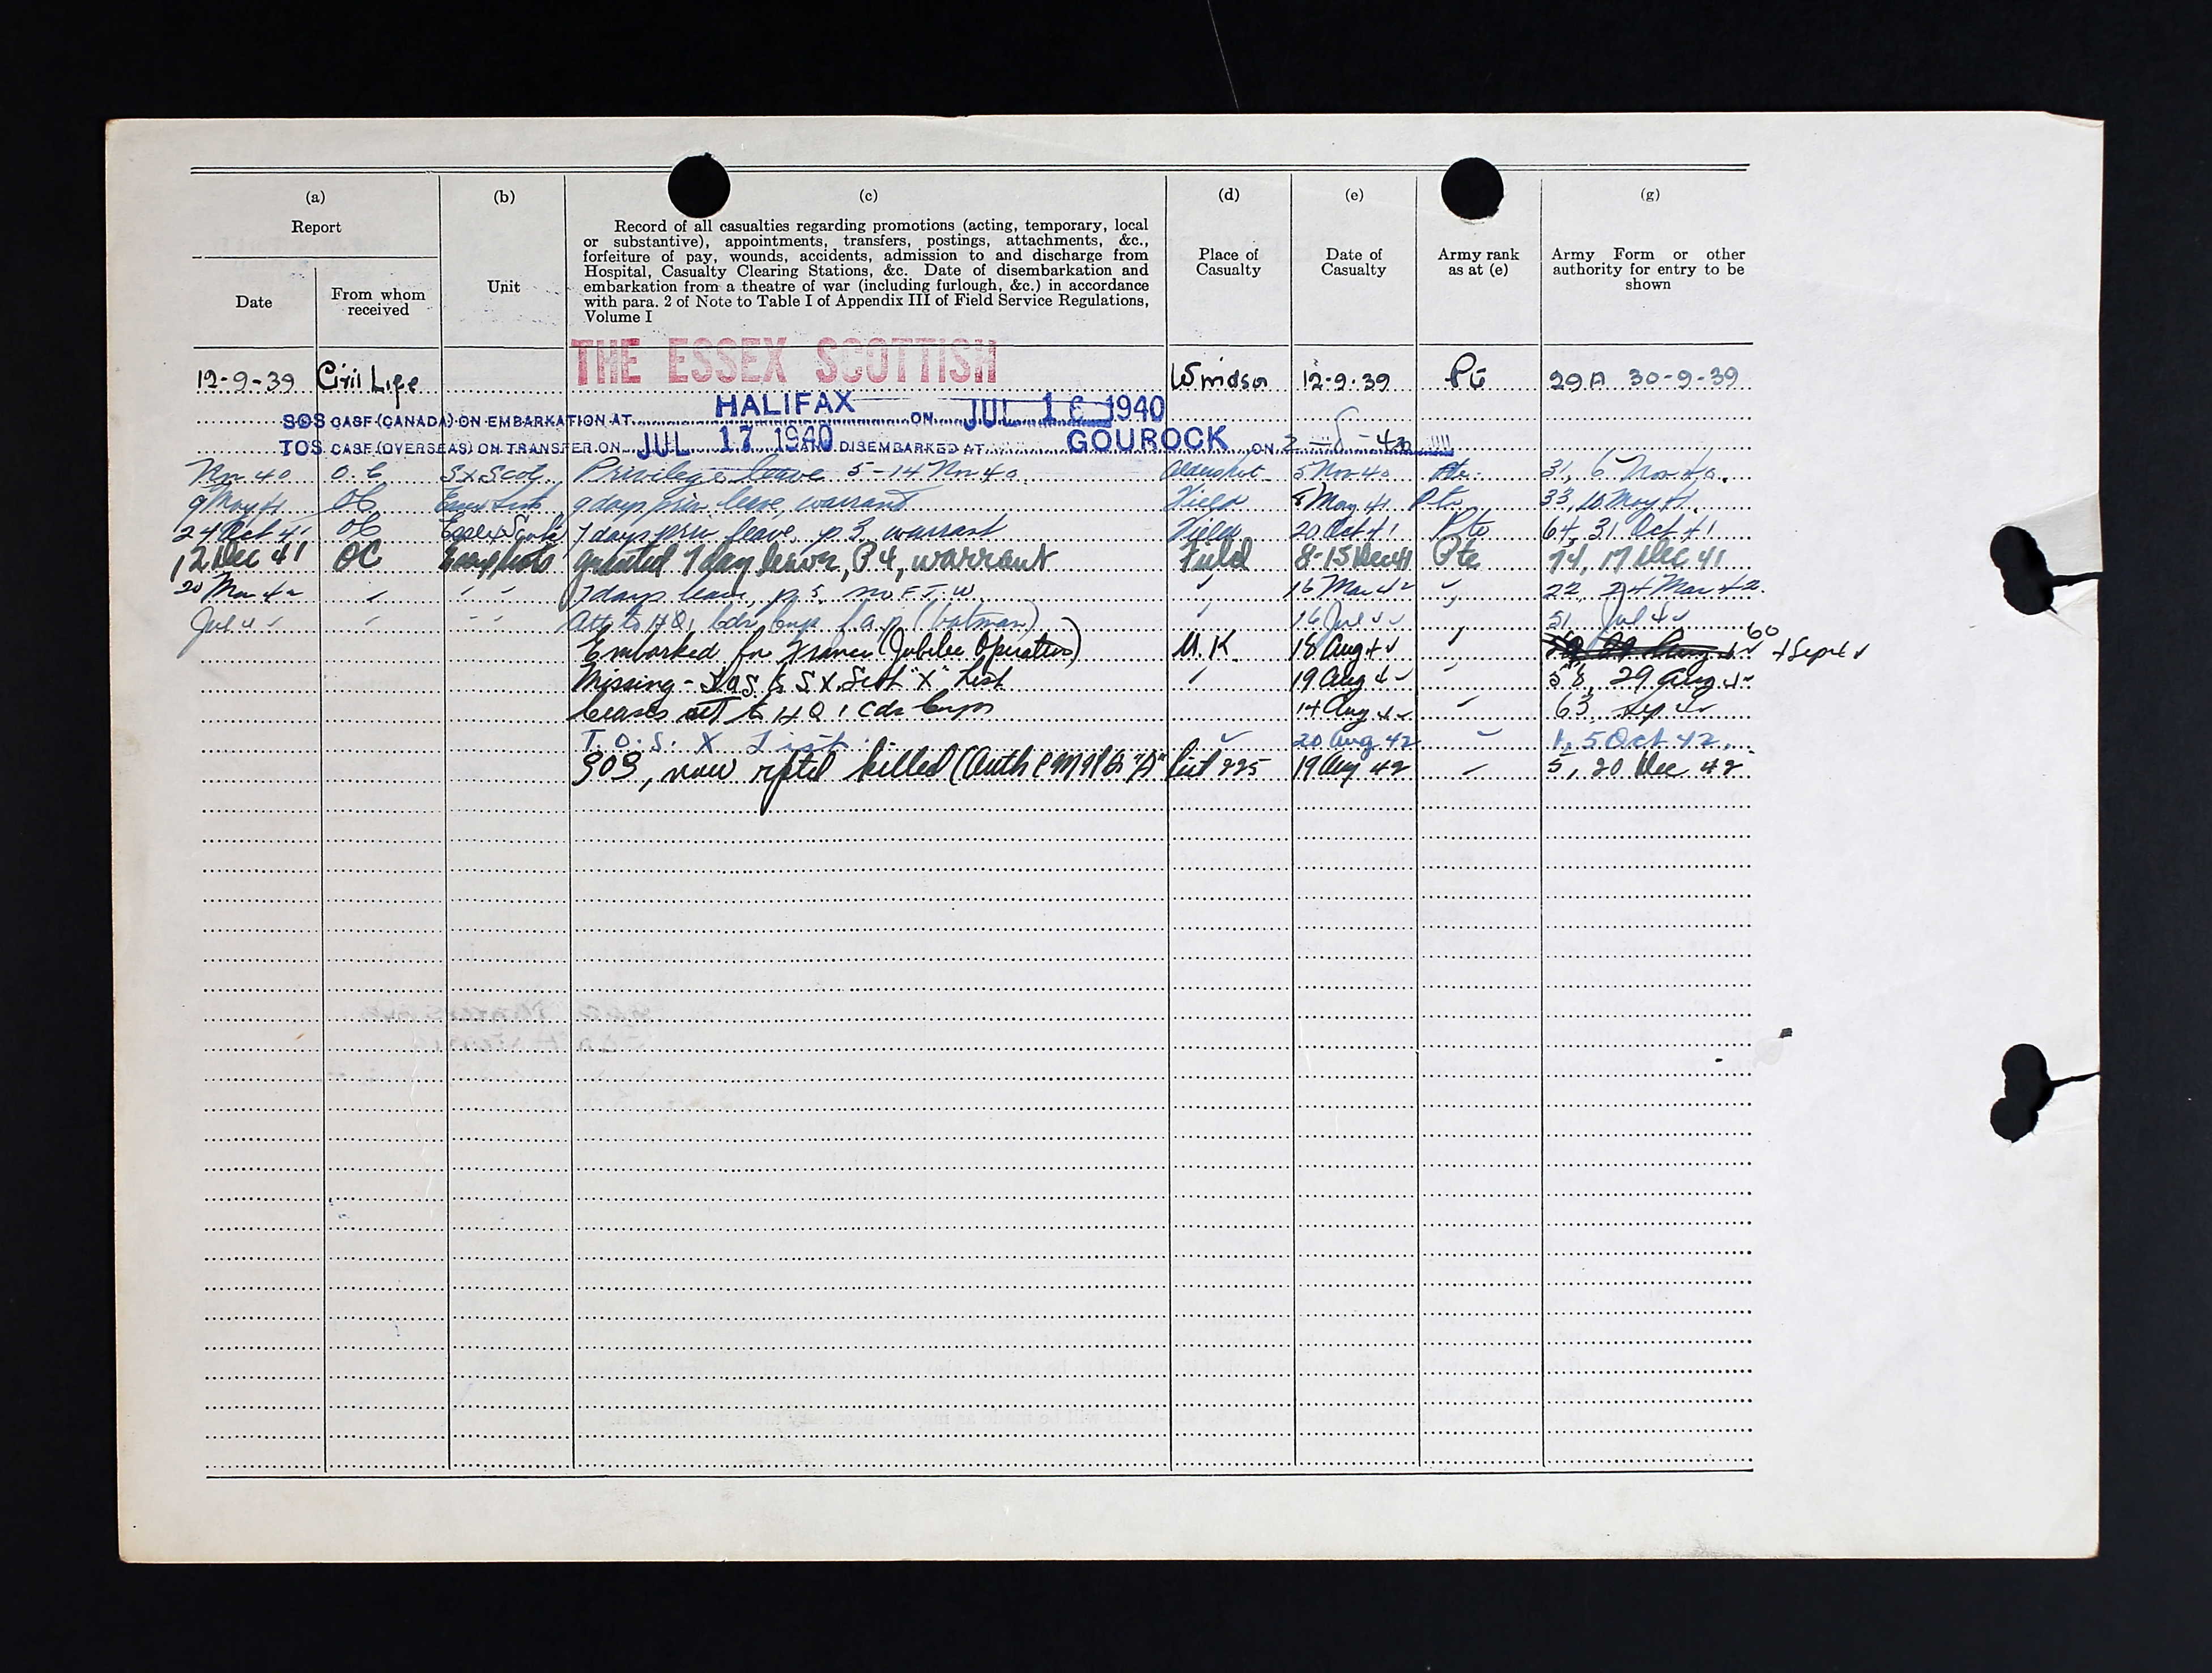 (a) (b) (c) (d) (e) (g)
Report
Date
From whom
received
Unit
Record of all casualties regarding promotions (acting, temporary, local
or substantive), appointments, transfers, postings, attachments, &c.,
forfeiture of pay, wounds, accidents, admission to and discharge from
Hospital, Casualty Clearing Stations, &c. Date of disembarkation and
embarkation from a theatre of war (including furlough, &c.) in accordance
with para. 2 of Note to Table I of Appendix III of Field Service Regulations,
Volume I
Place of
Casualty
Date of
Casualty
Army rank
as at (e)
Army Form or other
authority for entry to be
shown
THE ESSEX SCOTTISH
12-9-39 Civil Life Windsor 12-9-39 Pte 29A 30-9-39
SOS CASF (CANADA) ON EMBARKATION AT HALIFAX ON JUL 16 1940
TOS CASF (OVERSEAS) ON TRANSFER ON JUL 17 1940 AND DISEMBARKED AT GOUROCK ON 2-8-40
Nov 40 O.C SxScot Privilege leave 5-14 Nov 40 Aldershot 5 Nov 40 Pte 31, 6 Nov 40.
9 May 41 OC Essex Scot 9 days priv leave, warrant Field 8 May 41 Pte 33, 10 May 41.
24 Oct 41 OC Essex Scot 7 days priv leave, p 3, warrant Field 20 Oct 41 Pte 64, 31 Oct 41
12 Dec 41 OC granted 7 day leave, P 4, warrant Field 8-15 Dec 41 Pte 74, 17 Dec 41
20 Mar 42 " " " 7 days leave, p 5, no F.T.W. " 16 Mar 42 " 22, 24 Mar 42.
Jul 42 " " " Att to HQ 1 Cdn Corps (batman) " 16 Jul 42 51, Jul 42
Embarked for France (Jubilee Operation) U.K. 18 Aug 42 " 60 4 Sept 42
Missing - SOS to SX Scot "X" List " 19 Aug 42 " 58, 29 Aug 42
Ceases att to HQ 1 Cdn Corps 14 Aug 42 " 63, Sep 42
T.O.S. X List " 20 Aug 42 " 1, 5 Oct 42.
SOS, now rptd killed (Auth CMHQ "A" List 225 19 Aug 42 " 5, 20 Dec 42